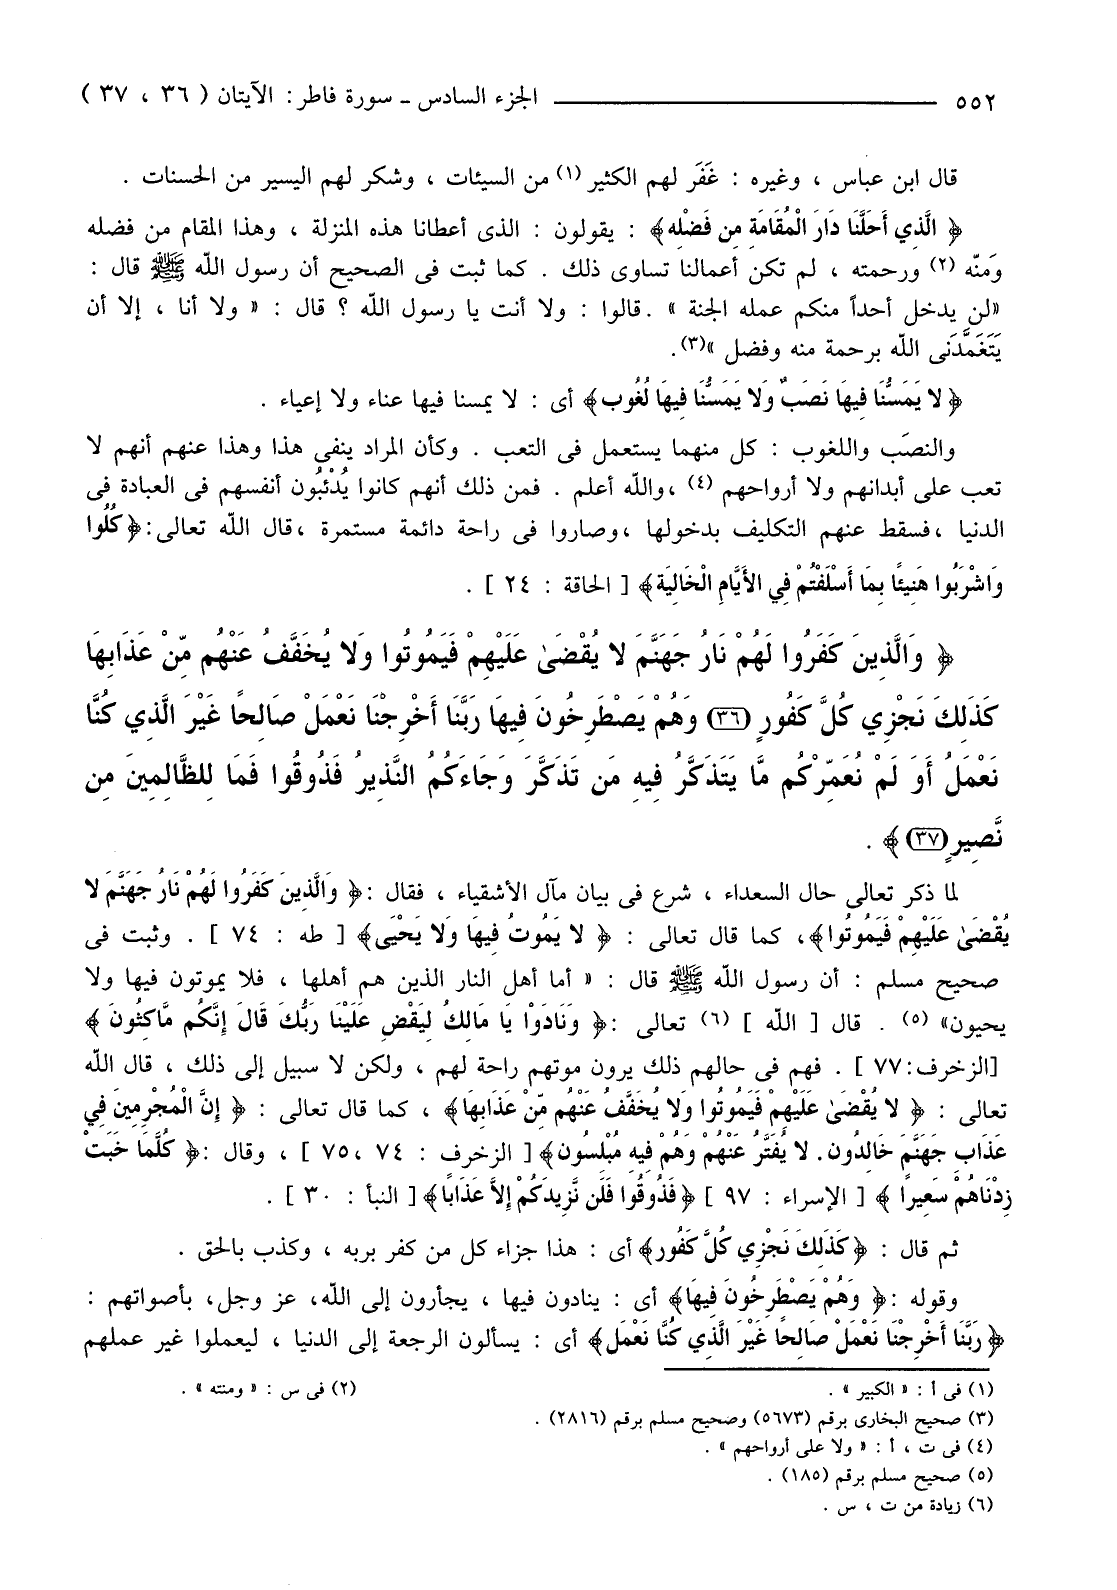 ٥٥٢ ـــــــــــــــــ الجزء السادس ـ سورة فاطر : الآيتان ( ٣٦ ، ٣٧ )
قال ابن عباس ، وغيره : غَفَر لهم الكثير (١) من السيئات ، وشكر لهم اليسير من الحسنات .
﴿ الَّذِي أَحَلَّنَا دَارَ الْمُقَامَةِ مِن فَضْلِه ﴾ : يقولون : الذى أعطانا هذه المنزلة ، وهذا المقام من فضله
وَمنّه (٢) ورحمته ، لم تكن أعمالنا تساوى ذلك . كما ثبت فى الصحيح أن رسول الله ﷺ قال :
«لن يدخل أحداً منكم عمله الجنة » . قالوا : ولا أنت يا رسول الله ؟ قال : « ولا أنا ، إلا أن
يَتَغَمَّدَنى الله برحمة منه وفضل »(٣).
﴿ لا يَمَسُّنَا فِيهَا نَصَبٌ وَلا يَمَسُّنَا فِيهَا لُغُوب ﴾ أى : لا يمسنا فيها عناء ولا إعياء .
والنصَب واللغوب : كل منهما يستعمل فى التعب . وكأن المراد ينفى هذا وهذا عنهم أنهم لا
تعب على أبدانهم ولا أرواحهم (٤) ،والله أعلم . فمن ذلك أنهم كانوا يُدْئبُون أنفسهم فى العبادة فى
الدنيا ،فسقط عنهم التكليف بدخولها ،وصاروا فى راحة دائمة مستمرة ،قال الله تعالى:﴿ كُلُوا
وَاشْرَبُوا هَنِيئًا بِمَا أَسْلَفْتُمْ فِي الأَيَّامِ الْخَالِيَة ﴾ [ الحاقة : ٢٤ ] .
﴿ وَالَّذِينَ كَفَرُوا لَهُمْ نَارُ جَهَنَّمَ لا يُقْضَىٰ عَلَيْهِمْ فَيَمُوتُوا وَلا يُخَفَّفُ عَنْهُم مِّنْ عَذَابِهَا
كَذَلِكَ نَجْزِي كُلَّ كَفُورٍ (٣٦) وَهُمْ يَصْطَرِخُونَ فِيهَا رَبَّنَا أَخْرِجْنَا نَعْمَلْ صَالِحًا غَيْرَ الَّذِي كُنَّا
نَعْمَلُ أَوَ لَمْ نُعَمِّرْكُم مَّا يَتَذَكَّرُ فِيهِ مَن تَذَكَّرَ وَجَاءَكُمُ النَّذِيرُ فَذُوقُوا فَمَا لِلظَّالِمِينَ مِن
نَّصِيرٍ (٣٧) ﴾ .
لما ذكر تعالى حال السعداء ، شرع فى بيان مآل الأشقياء ، فقال :﴿ وَالَّذِينَ كَفَرُوا لَهُمْ نَارُ جَهَنَّمَ لا
يُقْضَىٰ عَلَيْهِمْ فَيَمُوتُوا ﴾، كما قال تعالى : ﴿ لا يَمُوتُ فِيهَا وَلا يَحْيَى ﴾ [ طه : ٧٤ ] . وثبت فى
صحيح مسلم : أن رسول الله ﷺ قال : « أما أهل النار الذين هم أهلها ، فلا يموتون فيها ولا
يحيون» (٥) . قال [ الله ] (٦) تعالى :﴿ وَنَادَوْا يَا مَالِكُ لِيَقْضِ عَلَيْنَا رَبُّكَ قَالَ إِنَّكُم مَّاكِثُون ﴾
[الزخرف:٧٧ ] . فهم فى حالهم ذلك يرون موتهم راحة لهم ، ولكن لا سبيل إلى ذلك ، قال الله
تعالى : ﴿ لا يُقْضَىٰ عَلَيْهِمْ فَيَمُوتُوا وَلا يُخَفَّفُ عَنْهُم مِّنْ عَذَابِهَا ﴾ ، كما قال تعالى : ﴿ إِنَّ الْمُجْرِمِينَ فِي
عَذَابِ جَهَنَّمَ خَالِدُون . لا يُفَتَّرُ عَنْهُمْ وَهُمْ فِيهِ مُبْلِسُون ﴾ [ الزخرف : ٧٤ ،٧٥ ] ، وقال :﴿ كُلَّمَا خَبَتْ
زِدْنَاهُمْ سَعِيراً ﴾ [ الإسراء : ٩٧ ] ﴿ فَذُوقُوا فَلَن نَّزِيدَكُمْ إِلاَّ عَذَابًا ﴾ [ النبأ : ٣٠ ] .
ثم قال : ﴿ كَذَلِكَ نَجْزِي كُلَّ كَفُور ﴾ أى : هذا جزاء كل من كفر بربه ، وكذب بالحق .
وقوله :﴿ وَهُمْ يَصْطَرِخُونَ فِيهَا ﴾ أى : ينادون فيها ، يجأرون إلى الله، عز وجل، بأصواتهم :
﴿ رَبَّنَا أَخْرِجْنَا نَعْمَلْ صَالِحًا غَيْرَ الَّذِي كُنَّا نَعْمَل ﴾ أى : يسألون الرجعة إلى الدنيا ، ليعملوا غير عملهم
(١) فى أ : « الكبير » . (٢) فى س : « ومنته » .
(٣) صحيح البخارى برقم (٥٦٧٣) وصحيح مسلم برقم (٢٨١٦) .
(٤) فى ت ، أ : « ولا على أرواحهم » .
(٥) صحيح مسلم برقم (١٨٥) .
(٦) زيادة من ت ، س .